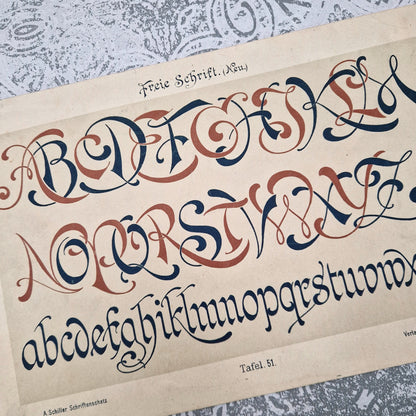 Freie Schrift. (Neu.)
ABCDEFGHIJKLM
NOPQRSTUVWXYZ
abcdefghiklmnopqrstuvwx
Tafel. 51.
A. Schiller Schriftenschatz